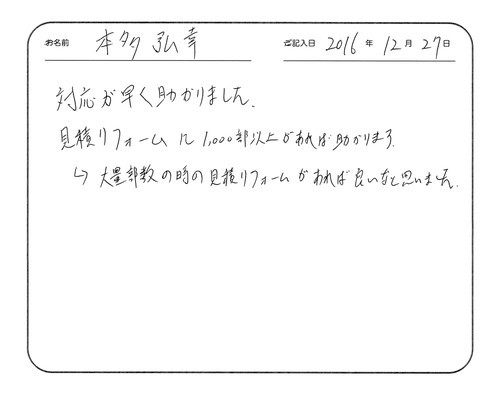 お名前 本多 弘幸 ご記入日 2016 年 12 月 27 日
対応が早く助かりました.
見積りフォームに1,000部以上があれば助かります.
↳ 大量部数の時の見積りフォームがあれば良いなと思いました.